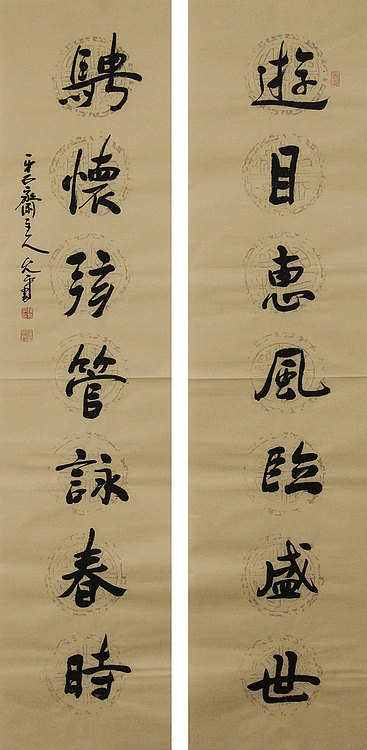 遊目惠風臨盛世
騁懷弦管詠春時
齋主人